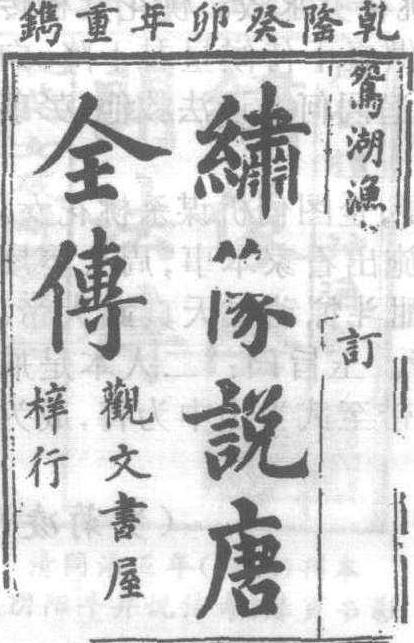 乾隆癸卯年重鐫
鴛湖漁
訂
繡像說唐
全傳
觀文書屋
梓行